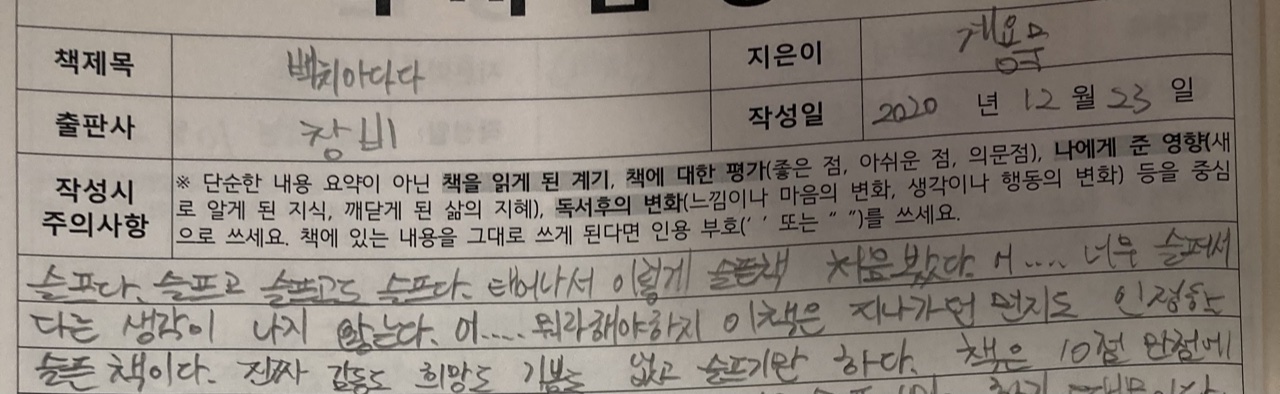 책제목 백치아다다 지은이 계용묵
출판사 창비 작성일 2020 년 12 월 23 일
작성시 주의사항
※ 단순한 내용 요약이 아닌 책을 읽게 된 계기, 책에 대한 평가(좋은 점, 아쉬운 점, 의문점), 나에게 준 영향(새
로 알게 된 지식, 깨닫게 된 삶의 지혜), 독서후의 변화(느낌이나 마음의 변화, 생각이나 행동의 변화) 등을 중심
으로 쓰세요. 책에 있는 내용을 그대로 쓰게 된다면 인용 부호(‘ ’ 또는 “ ”)를 쓰세요.
슬프다. 슬프고 슬프고도 슬프다. 태어나서 이렇게 슬픈책 처음 봤다. 어.... 너무 슬퍼서
다른 생각이 나지 않는다. 어..... 뭐라해야하지 이책은 지나가던 먼지도 인정하는
슬픈 책이다. 진짜 감동도 희망도 기쁨도 없고 슬프기만 하다. 책은 10점 만점에